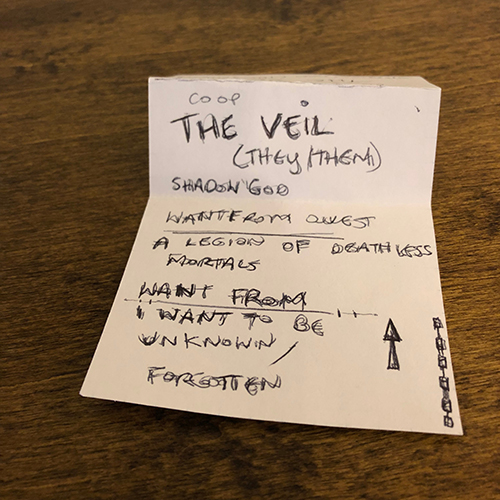 COOP
THE VEiL
(THEY/THEM)
SHADOW GOD
WANT FROM QUEST
A LEGION OF DEATHLESS
MORTALS
WANT FROM
I WANT TO BE
UNKNOWN/
FORGOTTEN